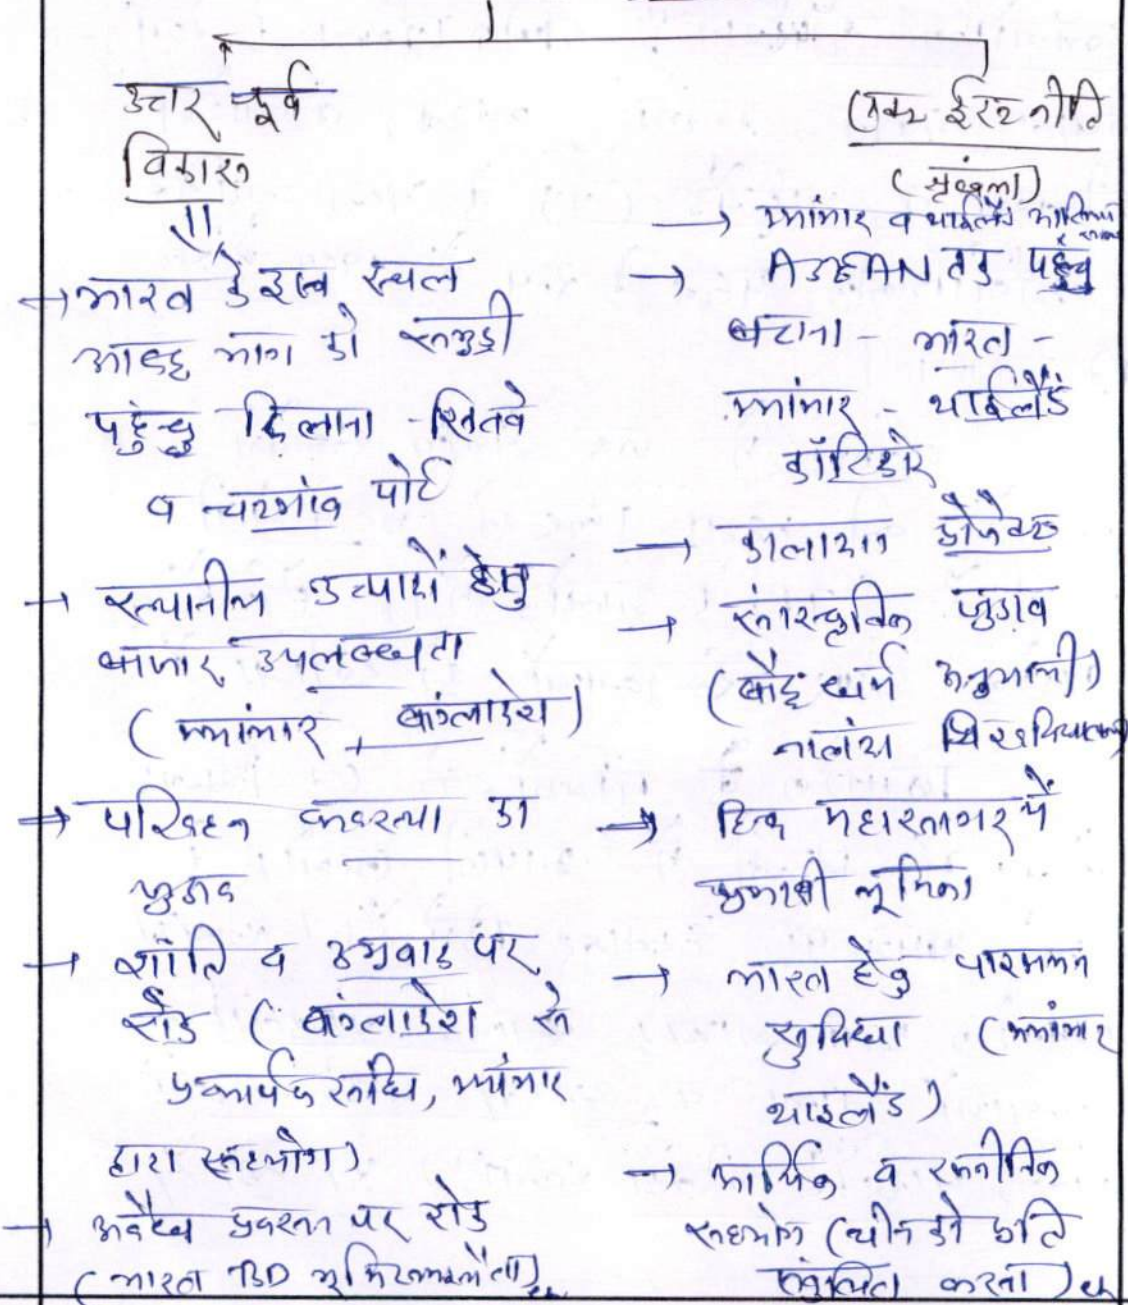 उत्तर पूर्व
विकास
→ भारत के इस स्थल
आबद्ध भाग को समुद्री
पहुंच दिलाना - सितवे
व चटगांव पोर्ट
→ स्थानीय उत्पादों हेतु
बाजार उपलब्धता
(म्यांमार, बांग्लादेश)
→ परिवहन व्यवस्था का
जुडाव
→ शांति व उग्रवाद पर
रोक (बांग्लादेश से
प्रत्यार्पण संधि, म्यांमार
द्वारा सहयोग)
→ अवैध प्रवसन पर रोक
(भारत BD भूमि समझौता)
(एक्ट ईस्ट नीति
(श्रृंखला)
→ म्यांमार व थाईलैंड
→ ASEAN तक पहुंच
बढाना - भारत -
म्यांमार - थाईलैंड
कॉरिडोर
→ कालादान प्रोजेक्ट
→ सांस्कृतिक जुडाव
(बौद्ध धर्म अनुयायी)
नालंदा विश्वविद्यालय
→ हिन्द महासागर में
प्रभावी भूमिका
→ भारत हेतु पारगमन
सुविधा (म्यांमार
थाइलैंड)
→ आर्थिक व रणनीतिक
सहयोग (चीन को प्रति
संतुलित करना)